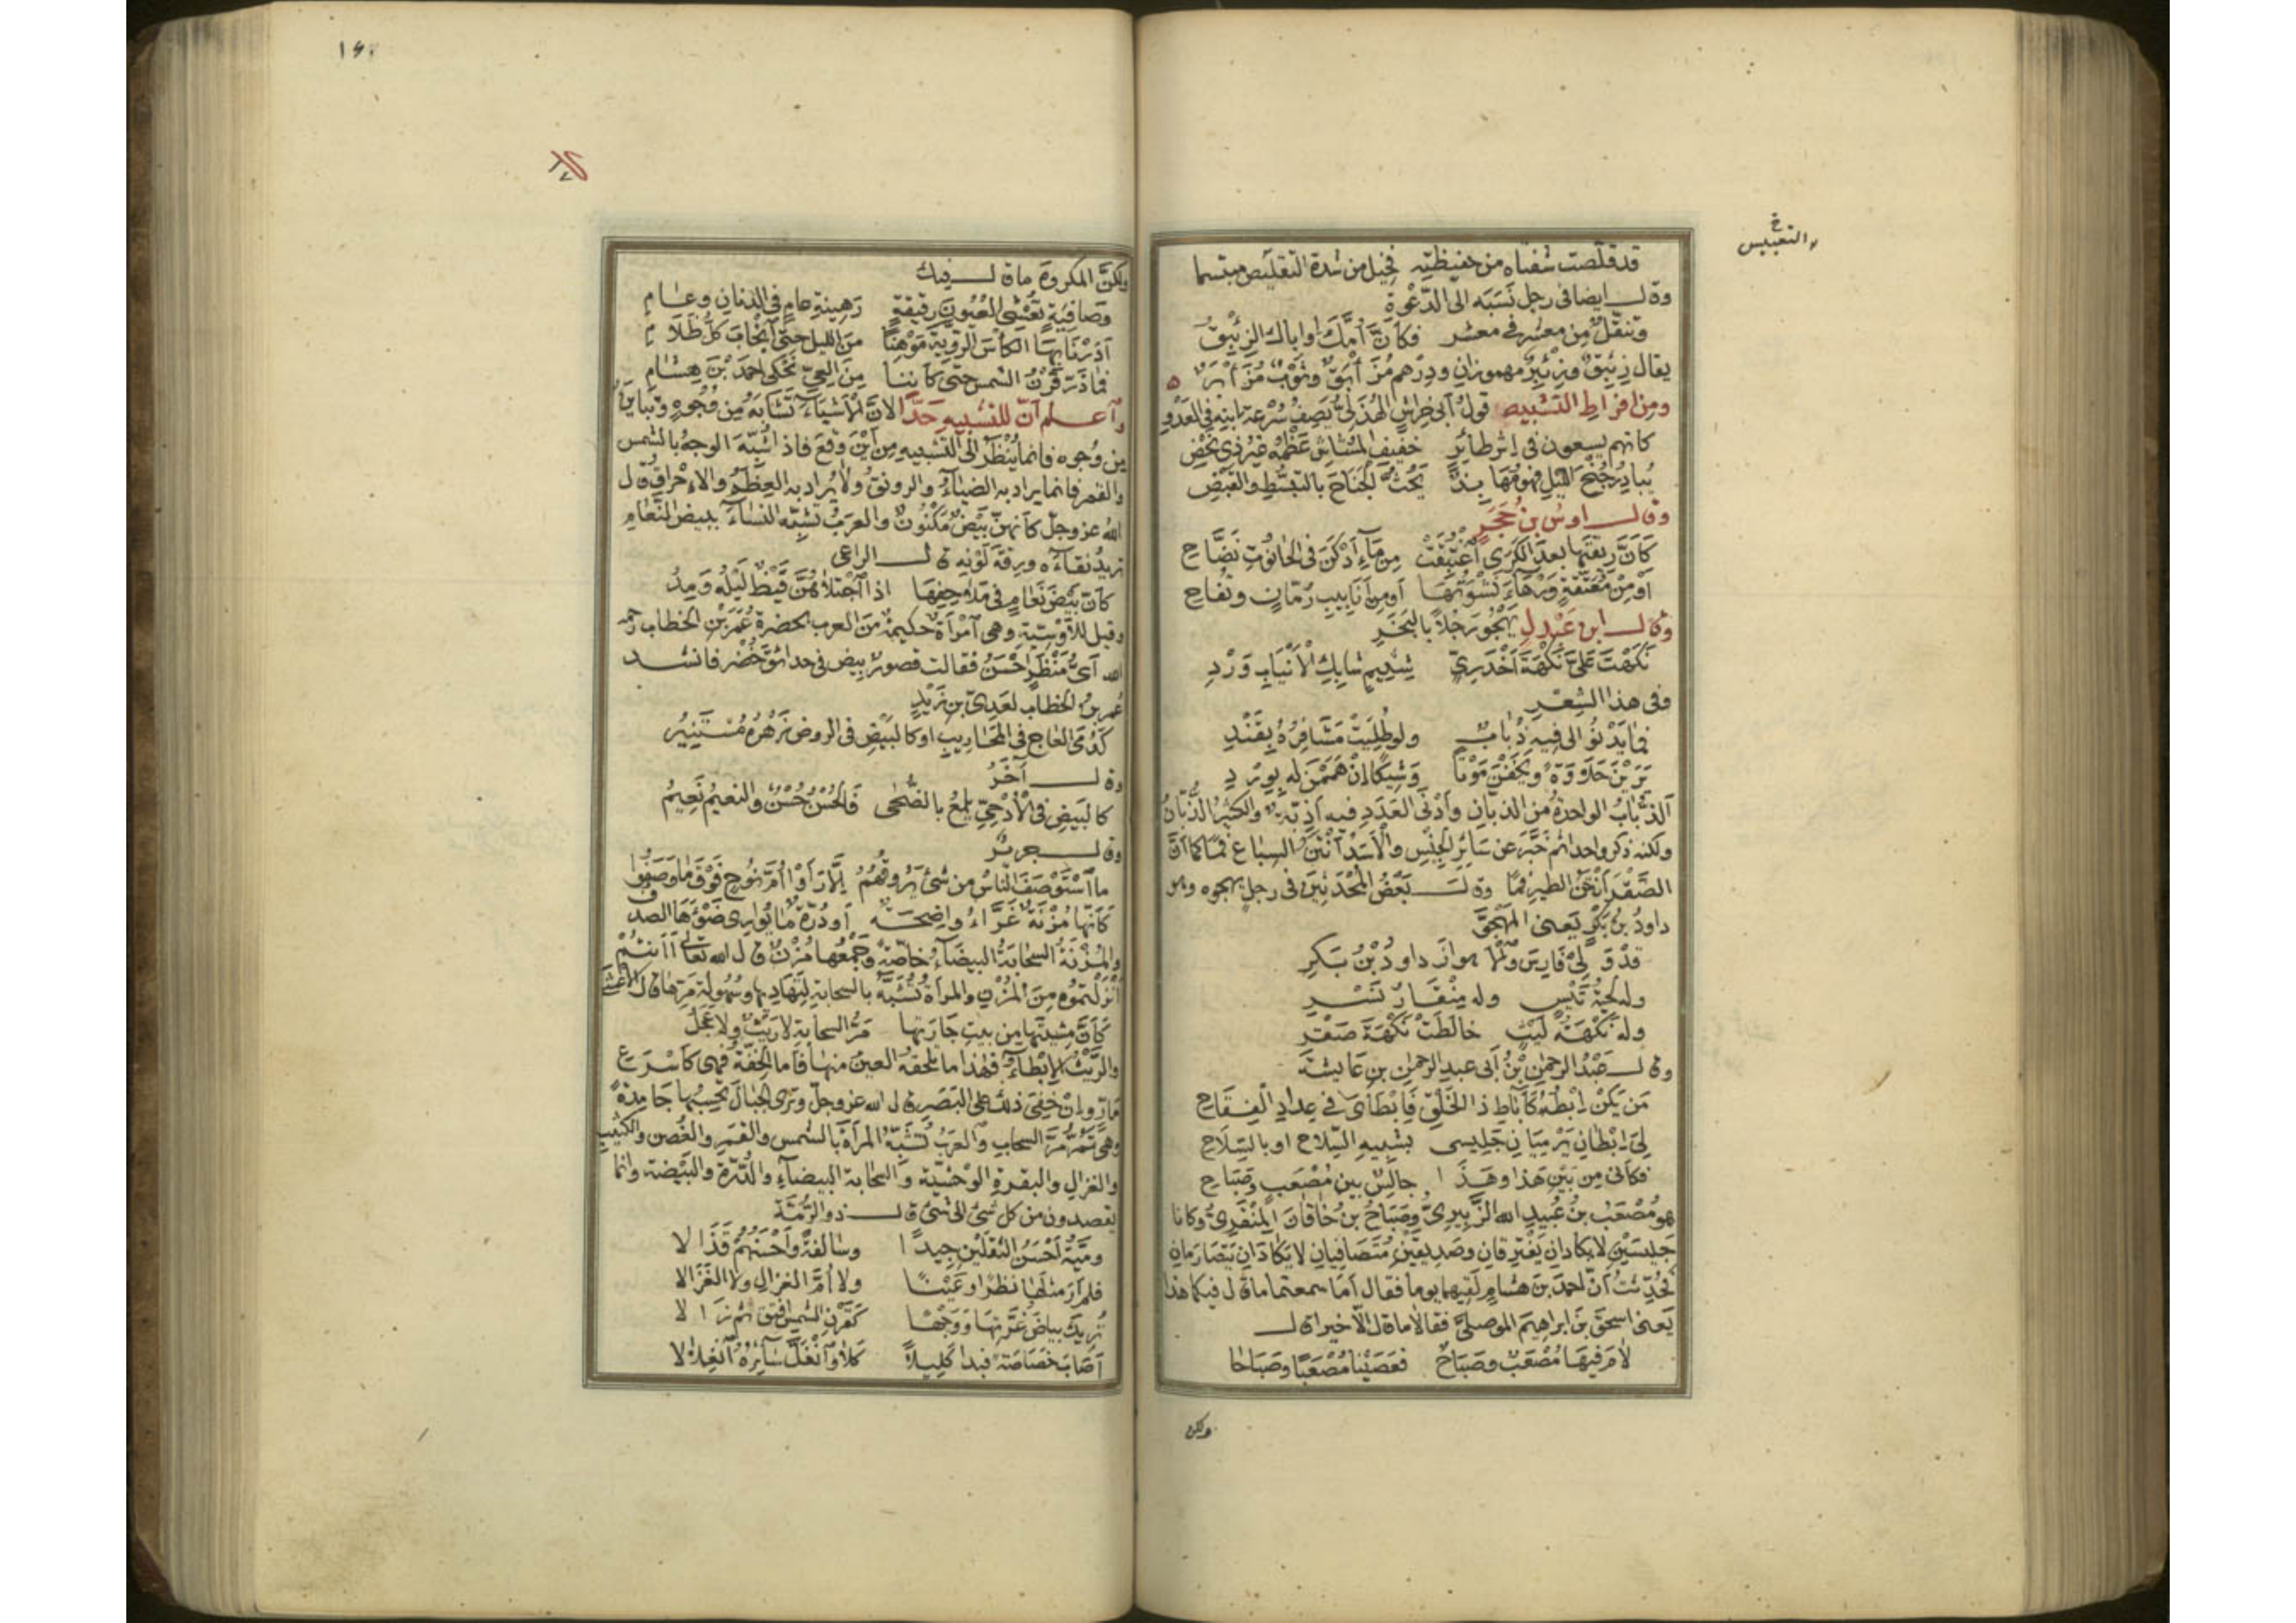 والتعبيس خ
قد قلصت شفتاه من حفيظته فخيل من شدة التقليص مبتسما
وقال ايضا فى رجل نسبه الى الدعوة
وتنقل من معشر فى معشر فكأن أمك او اباك الزئبق
يقال زئبق وزئبر مهموزان ودرهم مزأبق وثوب مزأبر
ومن افراط التشبيه قول ابى خراش الهذلى يصف سرعة ابنه فى العدو
كانهم يسعون فى اثر طائر خفيف المشاش عظمه غير ذى نحض
يبادر جنح الليل فهو مهابذ يحث الجناح بالتبسط والقبض
وقال اوس بن حجر
كأن ريقتها بعد الكرى اغتبقت من ماء أدكن فى الحانوت نضاح
أو من معتقة ورهاء نشوتها أو من أنابيب رمان وتفاح
وقال ابن عبدل يهجو رجلا بالبخر
نكهت على نكهة أخدرى شتيم شابك الانياب ورد
وفى هذا الشعر
فما يدنو الى فيه ذباب ولو طليت مشافره بقند
يرين حلاوة ويخفن موتا وشيكا ان هممن له بورد
الذباب الواحدة من الذبان وأدنى العدد فيه أذبة والكثير الذبان
ولكنه ذكر واحدا ثم خبر عن سائر الجنس والأسد أنتن السباع فما كما أن
الصقر أنخن الطير فما وقال بعض المحدثين فى رجل يهجوه وهو
داود بن بكر يعنى المهجو
قد ولى فارس والاهواز داود بن بكر
وله لحية تيس وله منقار نسر
وله نكهة ليث خالطت نكهة صقر
وقال عبد الرحمن بن أبى عبد الرحمن بن عايشة
من يكن ابطه كآباط ذا الخلق فابطاى فى عداد الفقاح
لى ابطان يرميان جليسى بشبيه السلاح او بالسلاح
فكأنى من بين هذا وهذا جالس بين مصعب وصباح
هو مصعب بن عبيد الله الزبيرى وصباح بن خاقان المنقرى وكانا
جليسين لا يكادان يفترقان وصديقين متصافيين لا يكادان يتصارمان
فحدثت أن احمد بن هشام لقيهما يوما فقال أما سمعتما ما قال فيكما هذا
يعنى اسحق بن ابراهيم الموصلى فقالا ما قال الا خيرا قال
لام فيها مصعب وصباح فعصينا مصعبا وصباحا
ولكن
ولكن المكروه ما قال فيك
وصافية تعشى العيون رقيقة رهينة عام فى الدنان وعام
أدرنا بها الكأس الروية موهنا من الليل حتى انجاب كل ظلام
فما ذر قرن الشمس حتى كأننا من العى نحكى احمد بن هشام
واعلم أن للتشبيه حدا لان الاشياء تشابه من وجوه وتباين
من وجوه فانما ينظر الى التشبيه من أين وقع فاذا شبه الوجه بالشمس
والقمر فانما يراد به الضياء والرونق ولا يراد به العظم والاحراق قال
الله عز وجل كأنهن بيض مكنون والعرب تشبه النساء ببيض النعام
تريد نقاءه ورقة لونه قال الراعى
كأن بيض نعام فى ملاحفها اذا اجتلاهن قيظ ليله ومد
وقيل للأوسية وهى امرأة حكيمة من العرب بحضرة عمر بن الخطاب رحمه
الله أى منظر احسن فقالت قصور بيض فى حدائق خضر فانشد
عمر بن الخطاب لعدى بن زيد
كدمى العاج فى المحاريب او كالبيض فى الروض زهره مستنير
وقال آخر
كالبيض فى الأدحى يلمع بالضحى فالحسن حسن والنعيم نعيم
وقال جرير
ما استوصف الناس من شىء يروقهم الا رأوا أم نوح فوق ما وصفوا
كأنها مزنة غراء واضحة أو درة ما يوارى ضوءها الصدف
والمزنة السحابة البيضاء خاصة وجمعها مزن قال الله تعالى أأنتم
أنزلتموه من المزن والمرأة تشبه بالسحابة لتهاديها وسهولة مرها قال الأعشى
كأن مشيتها من بيت جارتها مر السحابة لا ريث ولا عجل
والريث الابطاء فهذا ما تلحقه العين منها فأما الخفة فهى كأسرع
مار وان خفى ذلك على البصر قال الله عز وجل وترى الجبال تحسبها جامدة
وهى تمر مر السحاب والعرب تشبه المرأة بالشمس والقمر والغصن والكثيب
والغزال والبقرة الوحشية والسحابة البيضاء والدرة والبيضة وانما
يقصدون من كل شىء الى شىء قال ذو الرمة
ومية أحسن الثقلين جيدا وسالفة وأحسنهم قذالا
فلم أر مثلها نظرا وعينا ولا أم الغزال ولا الغزالا
تريك بياض غرتها ووجها كقرن الشمس افتق ثم زالا
أصاب خصاصة فبدا كليلا كلا وانغل سائره انغلالا